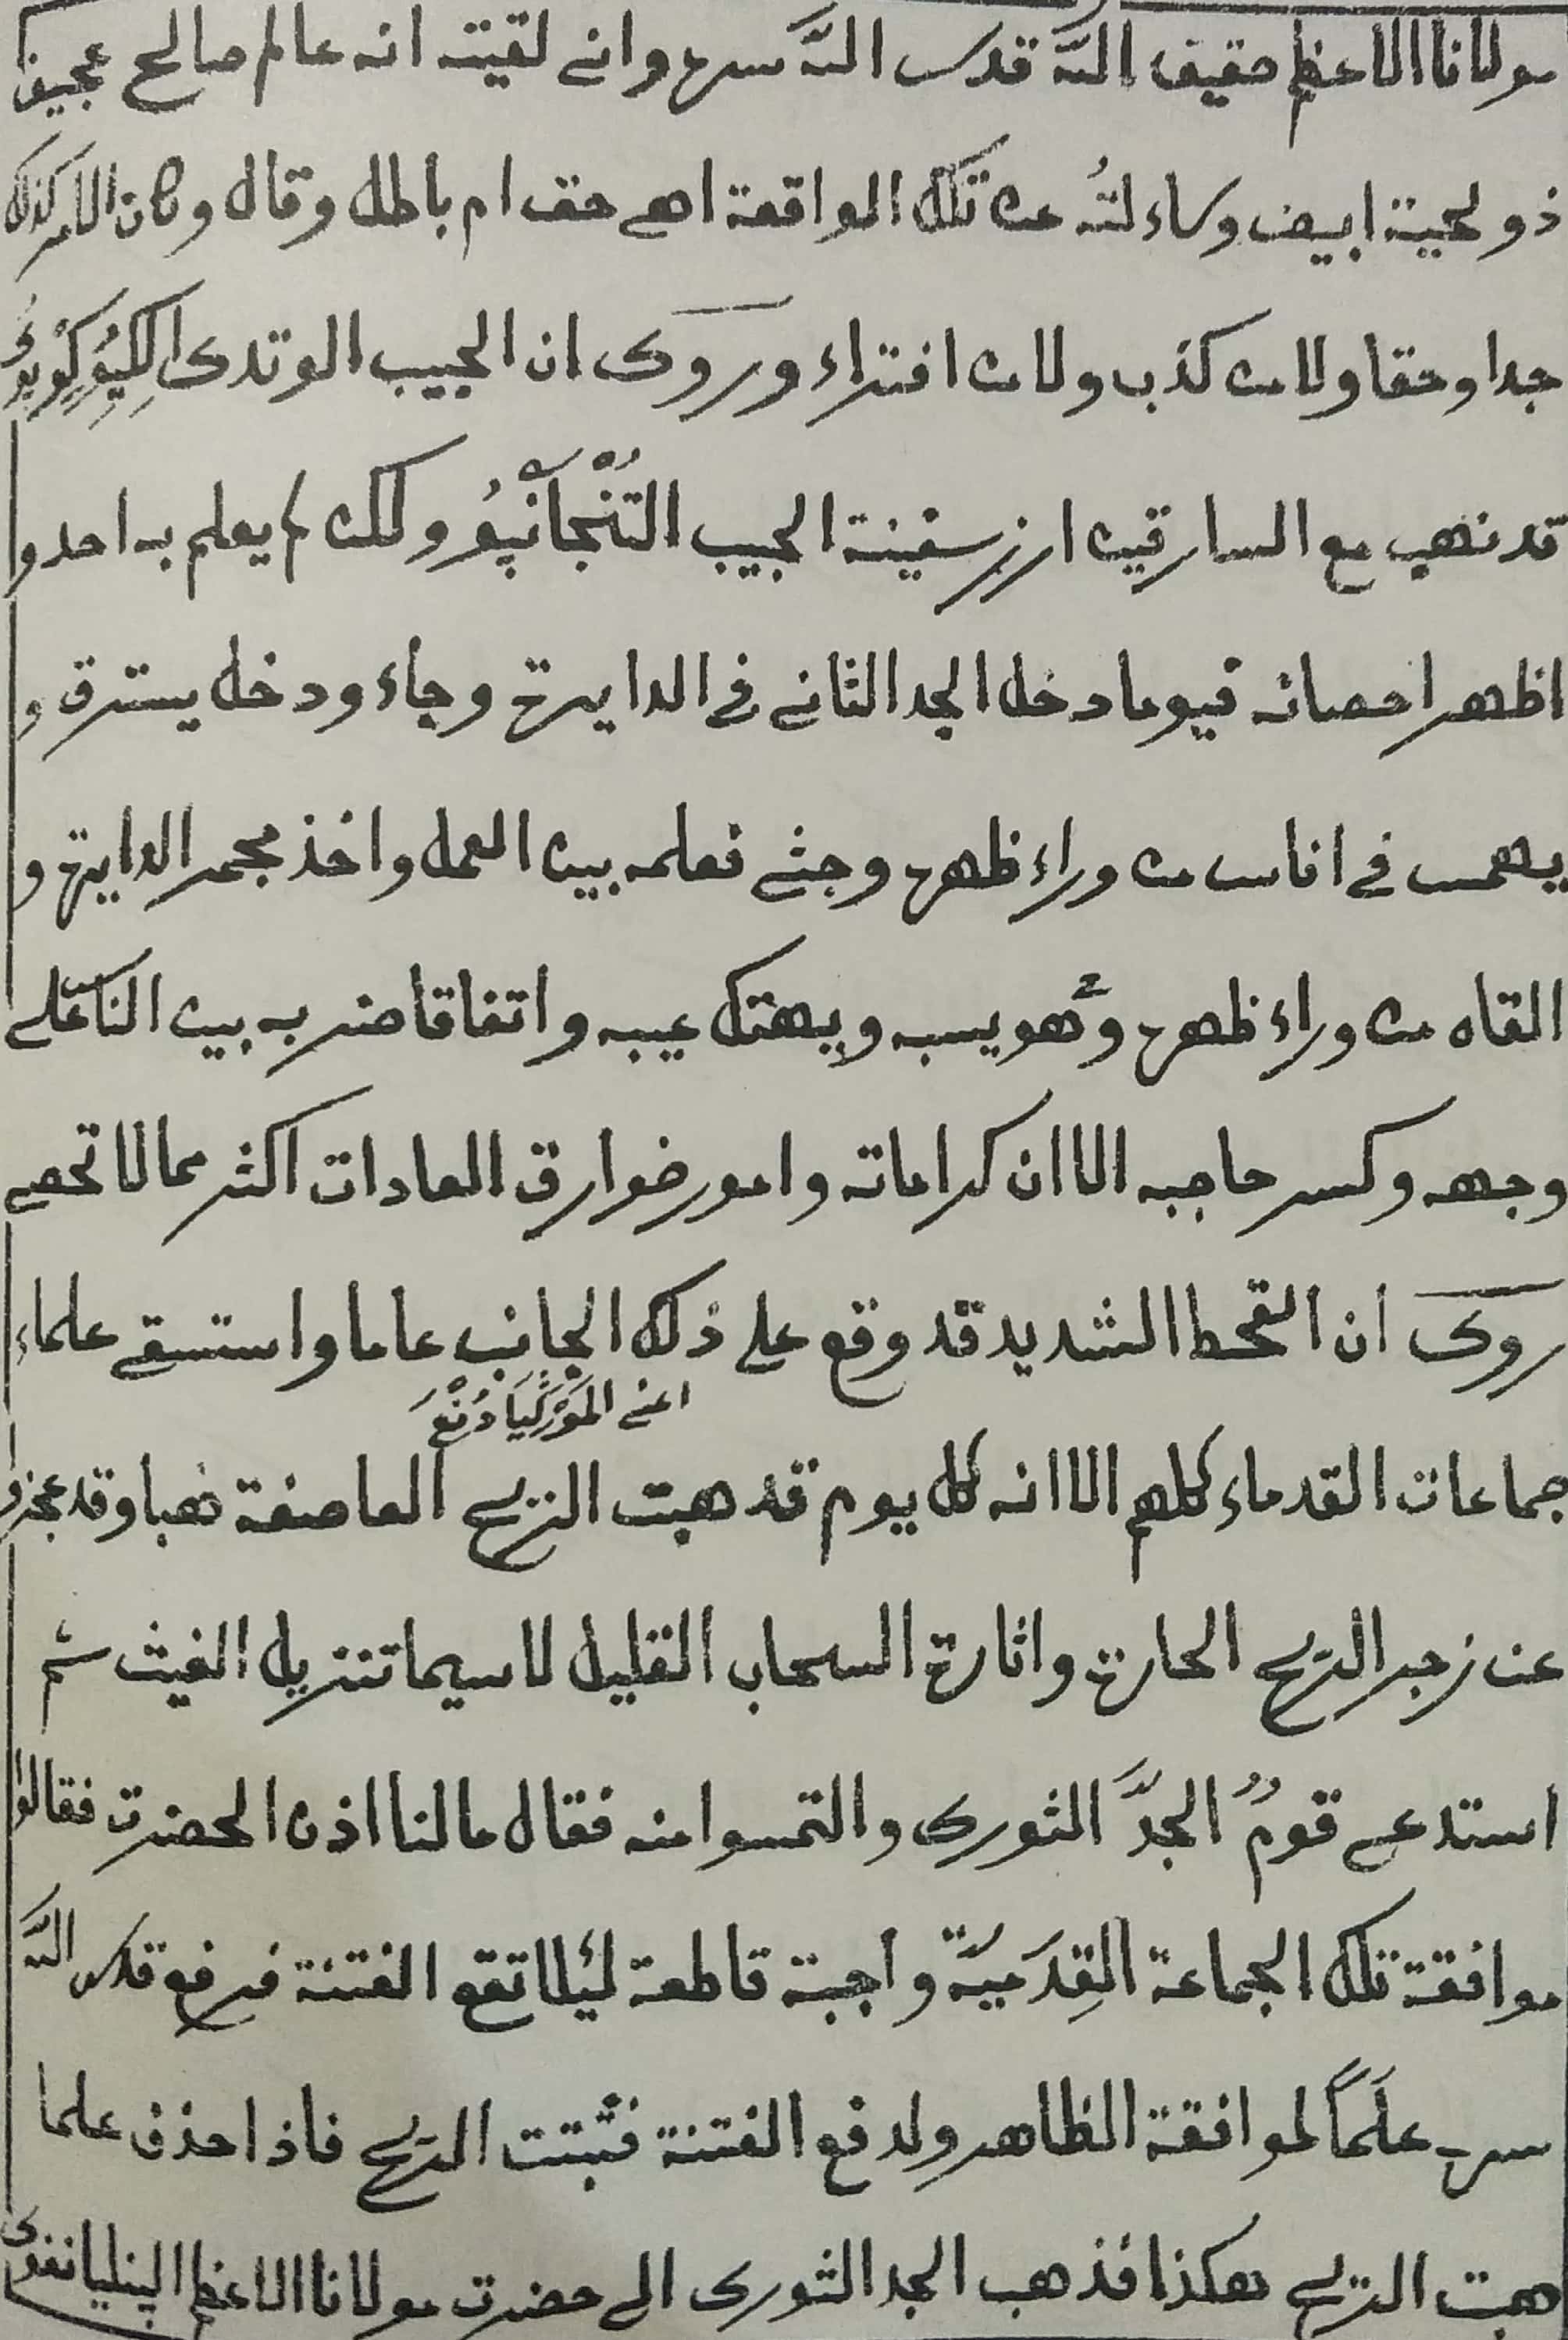 مولانا الاعظم حقيق اللّه قدس اللّه سره واني لقيته انه عالم صالح عجيف
ذو لحية ابيض وساءلتُه عن تلك الواقعة اهي حق ام باطل وقال وكان الامر كذلك
جدا وحقا ولا من كذب ولا من افتراء وروى ان الحبيب الوتدى
قد نهب مع السارقين ارز سفينة الحبيب ولكن لم يعلم به احد وا
اظهر احصانه فيوما دخل الجد الثاني في الدايرة وجاء ودخل يسترق و
يهمس في اناس من وراء ظهره وجثي فعلمه بين العمل واخذ مجمر الدايرة و
القاه من وراء ظهره وهو يسبه ويهتك عيبه واتفاقا ضربه بين الناس على
وجهه وكسر حاجبه الا ان كراماته وامور خوارق العادات اكثر مما لا تحصى
روى ان القحط الشديد قد وقع على ذلك الجانب عاما واستسقى علماء
اعني
جماعات القدماء كلهم الا انه كل يوم قد هبت الريح العاصفة هبا وقد عجزوا
عن زجر الريح الحارة واثارة السحاب القليل لا سيما تنزيل الغيث ثم
استدعى قومُ الجدَّ الثورى والتمسوا منه فقال ما لنا اذن الحضرة فقالوا
موافقة تلك الجماعة القِدَميّة واجبة قاطعة ليئلا تقع الفتنة فرفع قدس اللّه
سره علَماً لموافقة الظاهر ولدفع الفتنة فثبتت الريح فاذا حذف علما
هبت الريح هكذا فذهب الجد الثورى الى حضرت مولانا الاعظم